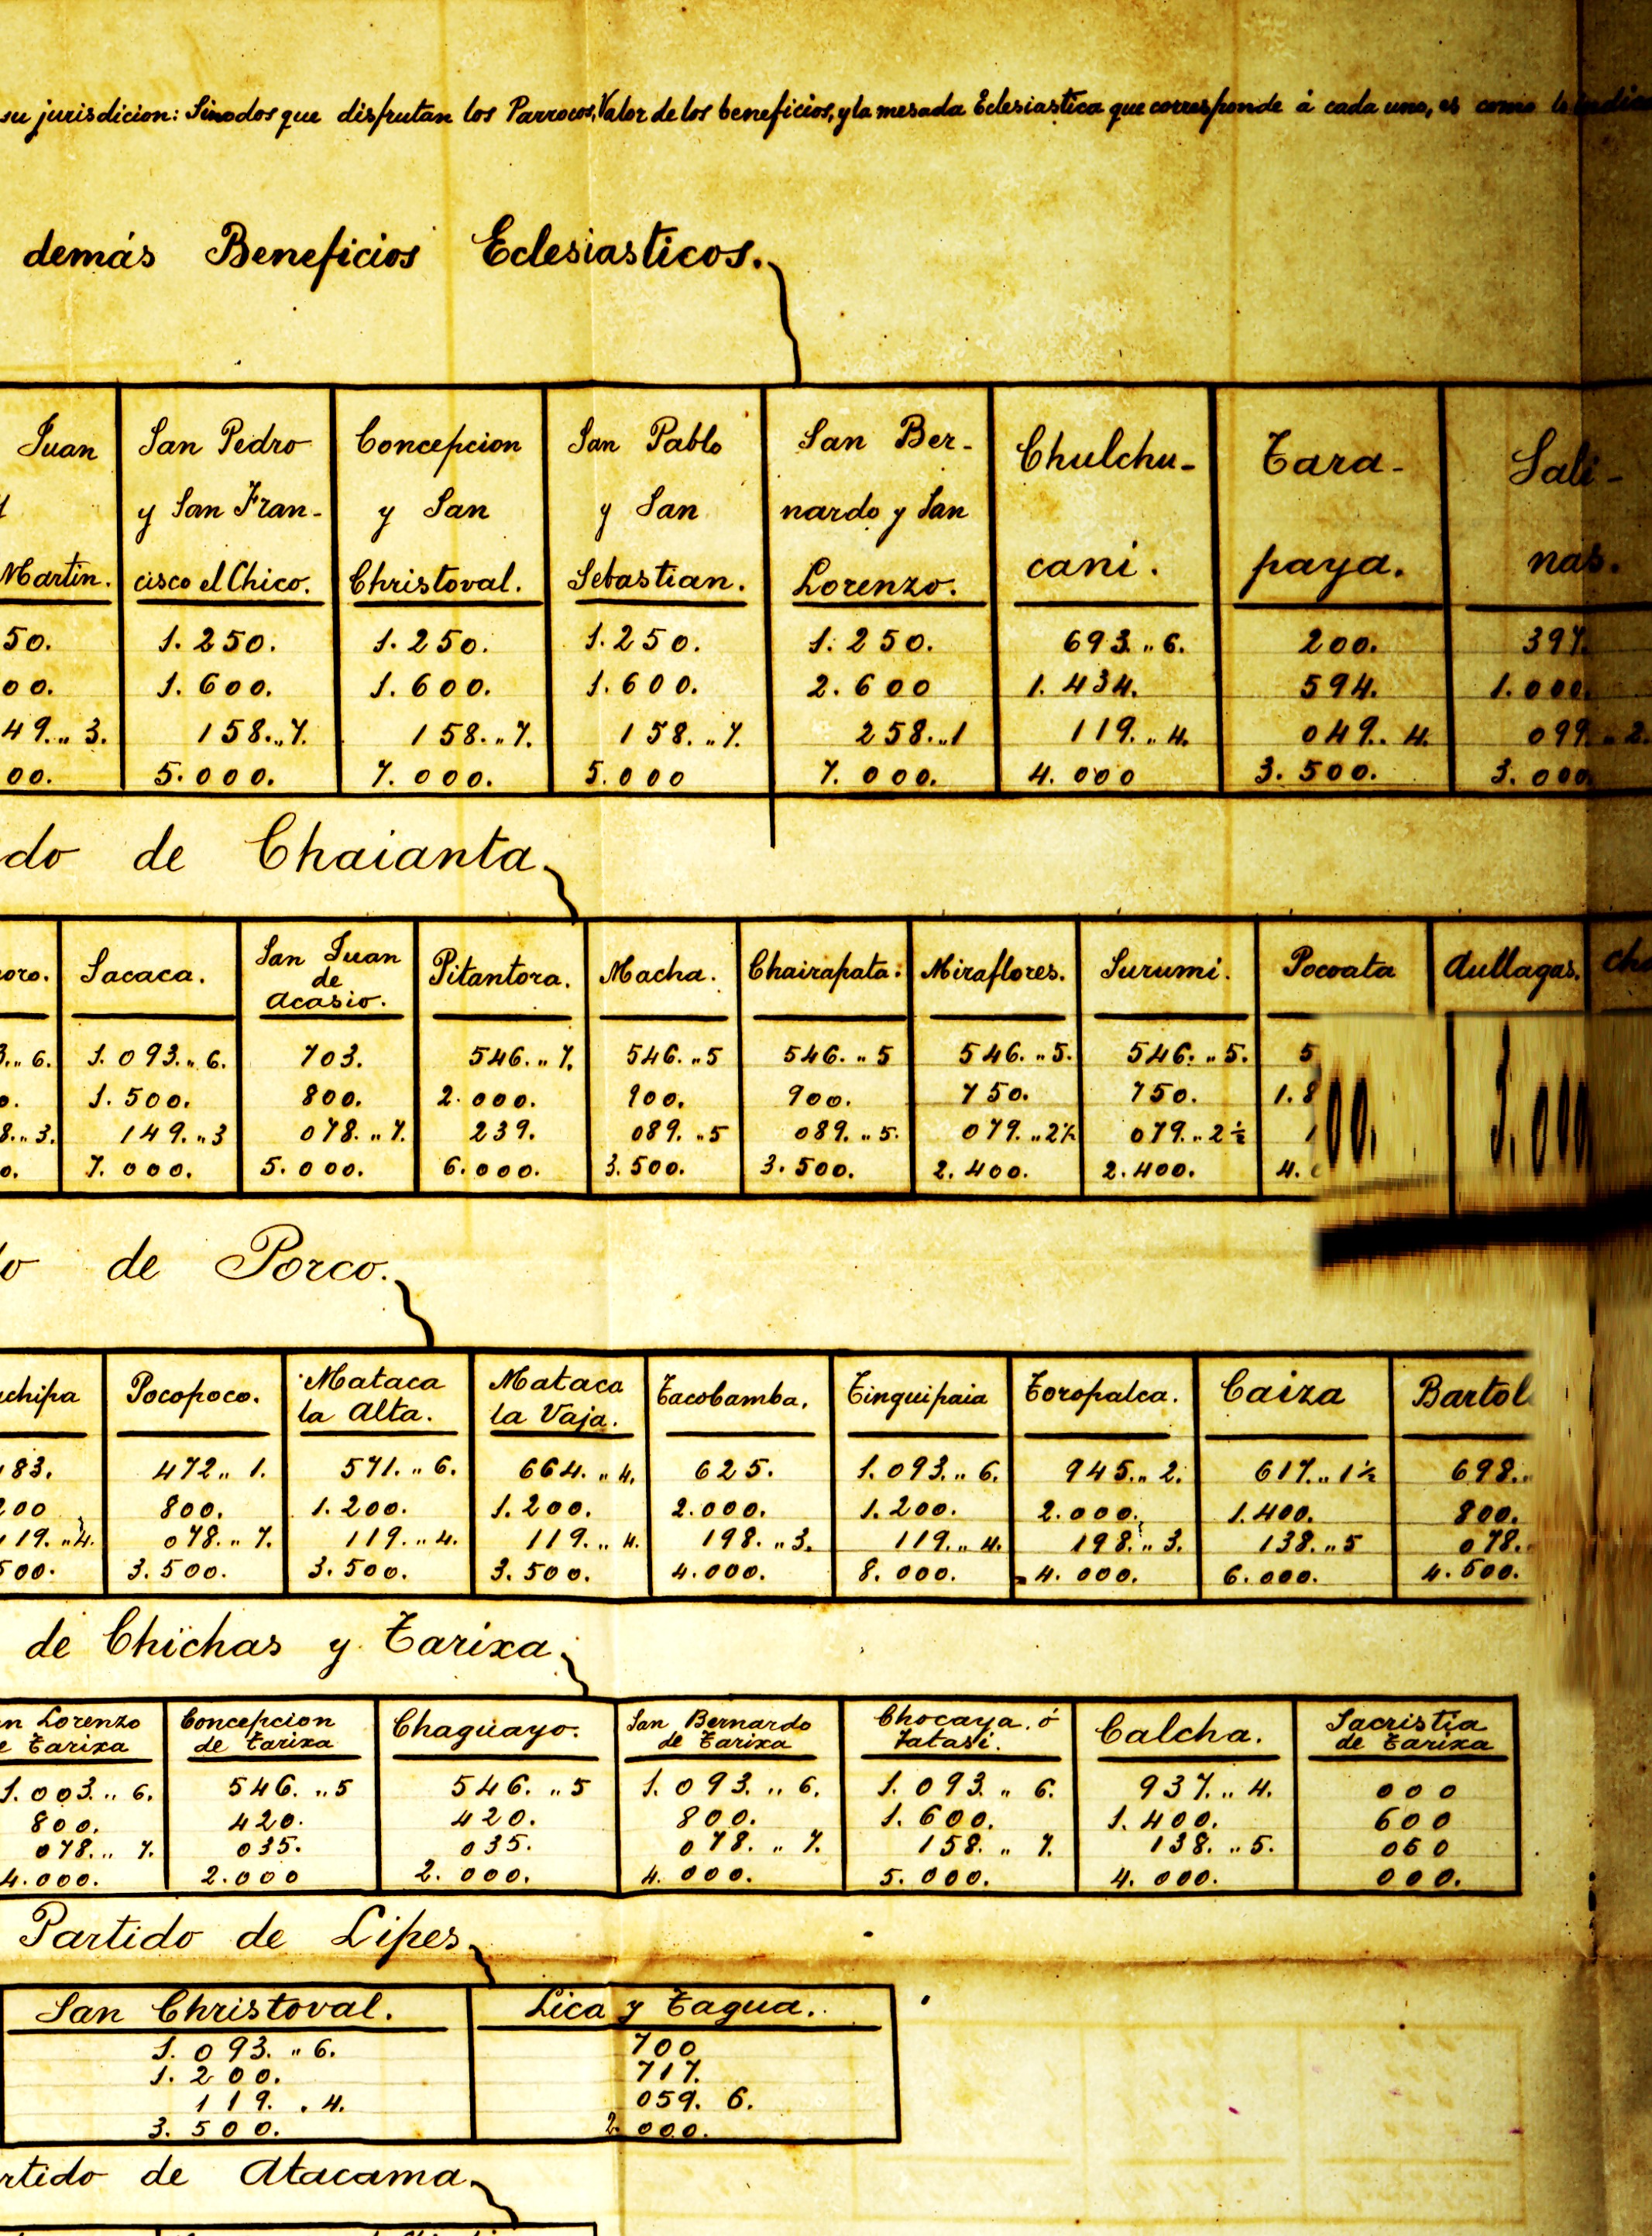 su jurisdicion: Sinodos que disfrutan los Parrocos, Valor de los beneficios, y la mesada Eclesiastica que corresponde á cada uno, es como lo
demás Beneficios Eclesiasticos.
Juan San Pedro Concepcion San Pablo San Ber- Chulchu- Tara- Sali-
y San Fran- y San y San nardo y San
Martin. cisco el Chico. Christoval. Sebastian. Lorenzo. cani. paya. nas.
50. 1.250. 1.250. 1.250. 1.250. 693.,,6. 200. 397.
00. 1.600. 1.600. 1.600. 2.600 1.434. 594. 1.000.
49.,,3. 158.,,7. 158.,,7. 158.,,7. 258.,,1 119.,,4. 049.,,4. 099.,,2.
00. 5.000. 7.000. 5.000 7.000. 4.000 3.500. 3.000
do de Chaianta.
oro. Sacaca. San Juan de Acasio. Pitantora. Macha. Chairapata. Miraflores. Surumi. Pocoata Aullagas. Cha
3.,,6. 1.093.,,6. 703. 546.,,7. 546.,,5 546.,,5 546.,,5. 546.,,5. 5
0. 1.500. 800. 2.000. 900. 900. 750. 750. 1.8
8.,,3. 149.,,3 078.,,7. 239. 089.,,5 089.,,5. 079.,,2½ 079.,,2½ 1 00. 3.000
0. 7.000. 5.000. 6.000. 3.500. 3.500. 2.400. 2.400. 4.
de Porco.
chipa Pocopoco. Mataca la Alta. Mataca la Vaja. Tacobamba. Tinguipaia Toropalca. Caiza Bartol
83. 472,,1. 571.,,6. 664.,,4. 625. 1.093.,,6. 945.,,2. 617.,,1½ 698.
200 800. 1.200. 1.200. 2.000. 1.200. 2.000. 1.400. 800.
119.,,4. 078.,,7. 119.,,4. 119.,,4. 198.,,3. 119.,,4. 198.,,3. 138.,,5 078.
500. 3.500. 3.500. 3.500. 4.000. 8.000. 4.000. 6.000. 4.500.
de Chichas y Tarixa.
n Lorenzo Concepcion Chaguayo. San Bernardo Chocaya, ó Calcha. Sacristia
e Tarixa de Tarixa de Tarixa Tatasi. de Tarixa
1.003.,,6. 546.,,5 546.,,5 1.093.,,6. 1.093.,,6. 937.,,4. 000
800. 420. 420. 800. 1.600. 1.400. 600
078.,,7. 035. 035. 078.,,7. 158.,,7. 138.,,5. 060
4.000. 2.000 2.000. 4.000. 5.000. 4.000. 000.
Partido de Lipes.
San Christoval. Lica y Tagua.
1.093.,,6. 700
1.200. 717.
119..4. 059.6.
3.500. 2.000.
rtido de Atacama.